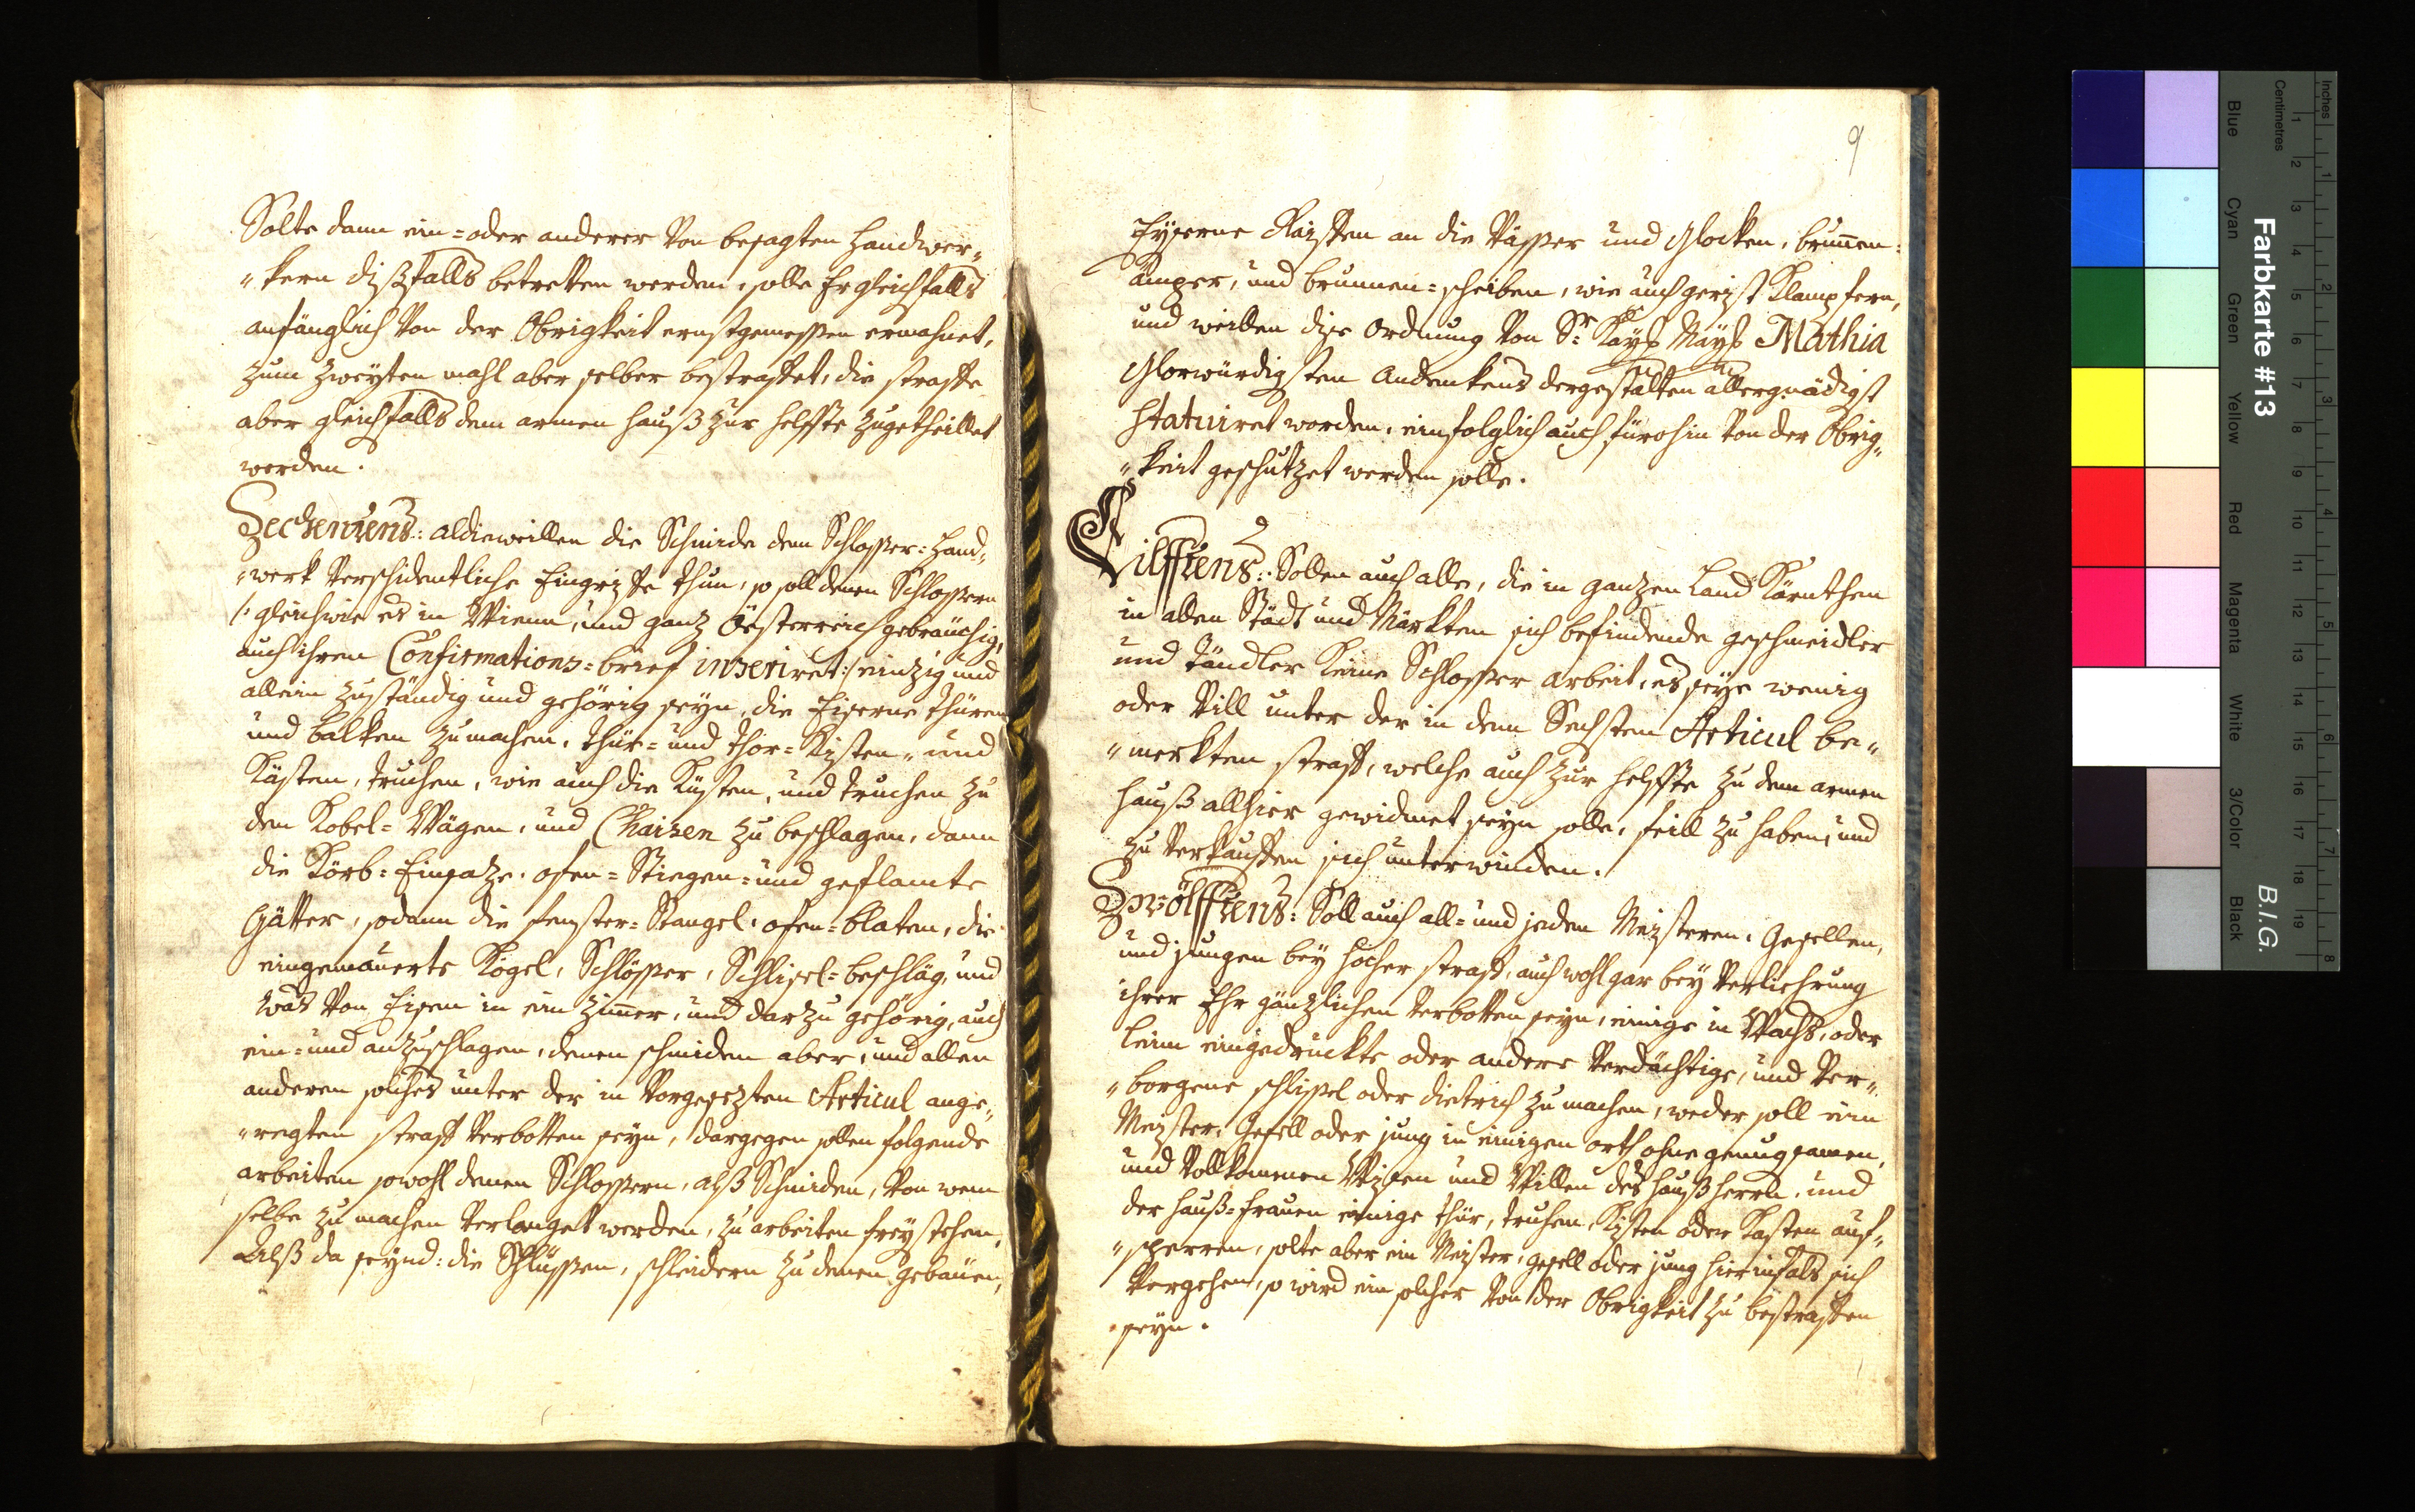 Solte dann ein= oder anderer von besagten Handwer„
„kern dißfalls betretten werden, solle Er gleichfalls
anfänglich von der Obrigkeit ernstgemessen ermahnet,
zum zweyten mahl aber selber bestraffet, die straffe
aber gleichfalls dem armen hauß zur helffte zugetheillet
werden.
Zechentens: aldieweillen die Schmide dem Schlosser=Hand„
„werk verschidentliche Eingriffe thun, so soll denen Schlossern
/: gleichwie es in Wienn, und ganz Öesterreich gebräuchig,
auch ihren Confirmations=brief inseriret :/ einzig und
allein zuständig und gehörig seyn, die Eiserne thüren
und balken zumachen, thür= und thor=Kisten, und
Kästen, truchen, wie auch die Küsten, und truchen zu
den Kobel=Wägen, und Chaisen zu beschlagen, dann
die Körb=Einsaze, ofen=Stiegen= und geflamte
Gätter, sodann die fenster=Stangel, ofen=blaten, die
eingemauerte Kögel, Schlösser, Schlisel=beschläg, und
was von Eisen in ein Zimmer, und darzu gehörig, auch
ein= und anzuschlagen, denen schmiden aber, und allen
anderen solches unter der in Vorgesezten Articul ange„
„regten straff verbotten seyn, dargegen sollen folgende
arbeiten sowohl denen Schlossern, alß Schmiden, von wem
selbe zu machen verlanget werden, zu arbeiten frey stehen,
Alß da seynd: die Schlüssen, schleidern zu denen gebäuen,
9
Eyserne Raiffen an die Vässer und Glocken, brunnen=
ämper, und brunnen=scheiben, wie auch gerist Klampfern,
und weillen dise Ordnung von Sr: Kayß Mayß Mathia
Glorwürdigsten Andenkens dergestalten allergnädigst
statuiret worden, einfolglich auch fürohin von der Obrig„
„keit geschutzet werden solle.
Eilfftens: Sollen auch alle, die in ganzen Land Kärnthen
in allen Städt und Märkten sich befindende geschmeidler
und tändler keine Schlosser arbeit, es seye wenig
oder Vill unter der in dem Sechsten Articul be„
„merkten straff, welche auch zur helffte zu dem armen
hauß allhier gewidmet seyn solle, feill zu haben, und
zu verkauffen sich unterwinden.
Zwölfftens: Soll auch all= und jeden Meisteren, Gesellen,
und jungen bey hocher straff, auch wohl gar bey verliehrung
ihrer Ehr gänzlichen verbotten seyn, einige in Wachs, oder
leim eingedruckte oder andere verdächtige, und Ver„
„borgene schlissel oder dietrich zu machen, weder soll ein
Meister, Gesell oder jung in einigen orth ohne genugsamen,
und Vollkommen Wissen und Willen des haußherrn, und
der hauß=frauen einige thür, truhen, Kisten oder Kasten auf„
„sperren, solte aber ein Meister, gesell oder jung hierinfals sich
Vergehen, so wird ein solcher von der Obrigkeit zu bestraffen
seyn.
Farbkarte #13
B.I.G.
Inches
Centimetres
Blue
Cyan
Green
Yellow
Red
Magenta
White
3/Color
Black
1 2 3 4 5 6 7 8 9 10 11 12 13 14 15 16 17 18 19
1 2 3 4 5 6 7 8